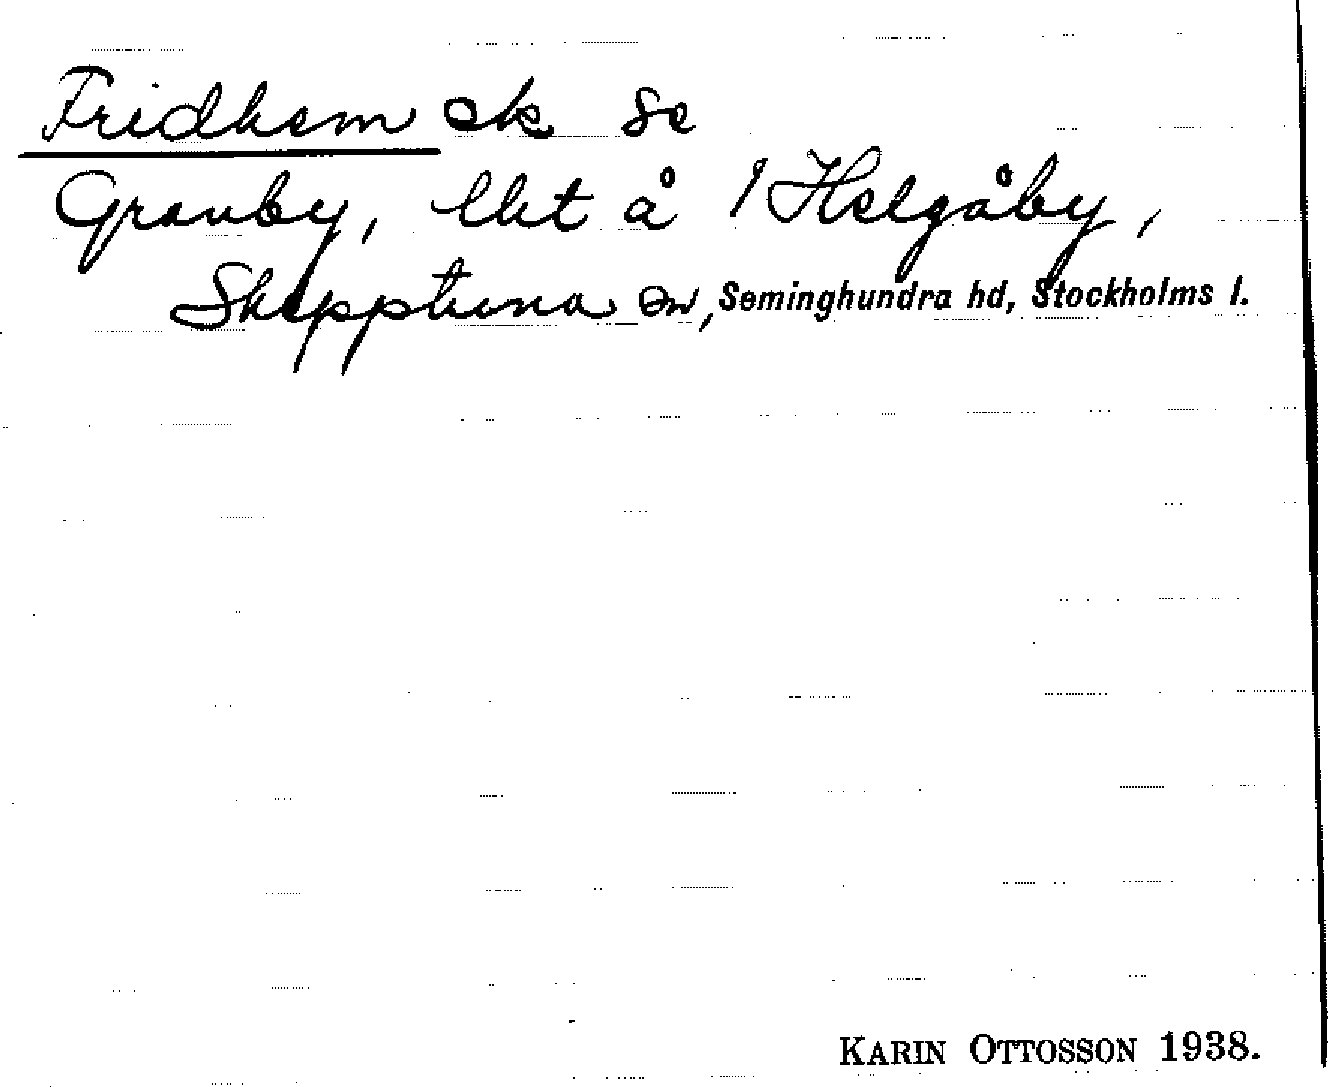 Fridhem ek se
Granby, lht å 1 Helgåby,
Skepptuna sn, Seminghundra hd, Stockholms l.
KARIN OTTOSSON 1938.